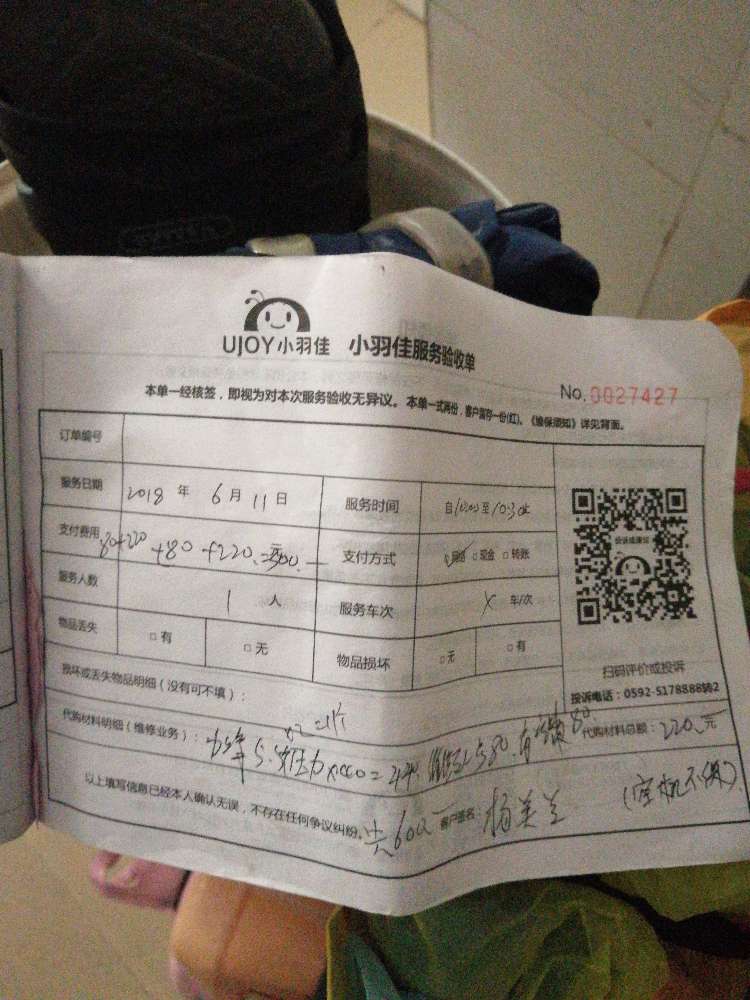 UJOY小羽佳 小羽佳服务验收单
No. 0027427
本单一经核签，即视为对本次服务验收无异议。本单一式两份，客户留存一份(红)。《维保须知》详见背面。
订单编号
服务日期 2018 年 6 月 11 日 服务时间 自10:00至10:30
支付费用 80+220+80+220 元 支付方式 □网络 □现金 □转账
服务人数 1 人 服务车次 车/次
物品丢失 □有 □无 物品损坏 □无 □有
投诉或建议
扫码评价或投诉
投诉电话：0592-5178888转62
损坏或丢失物品明细（没有可不填）：
代购材料明细（维修业务）： 代购材料总额：220元
以上填写信息已经本人确认无误，不存在任何争议纠纷。 共600 客户签名：杨美兰